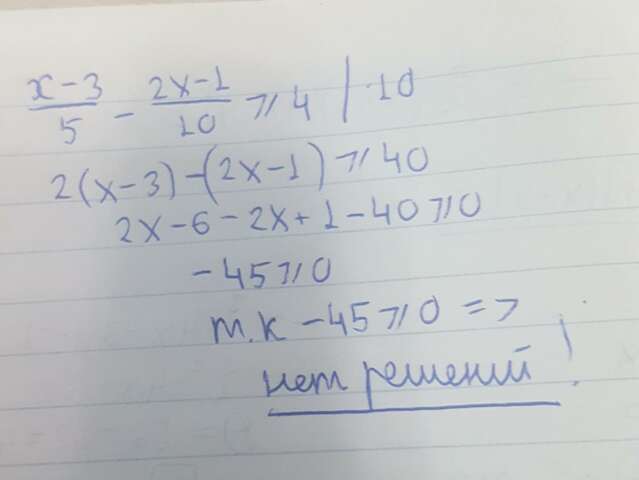 x-3/5 - 2x-1/10 ⩾ 4 | ·10
2(x-3)-(2x-1) ⩾ 40
2x-6-2x+1-40⩾0
-45⩾0
т.к -45⩾0 =>
нет решений!